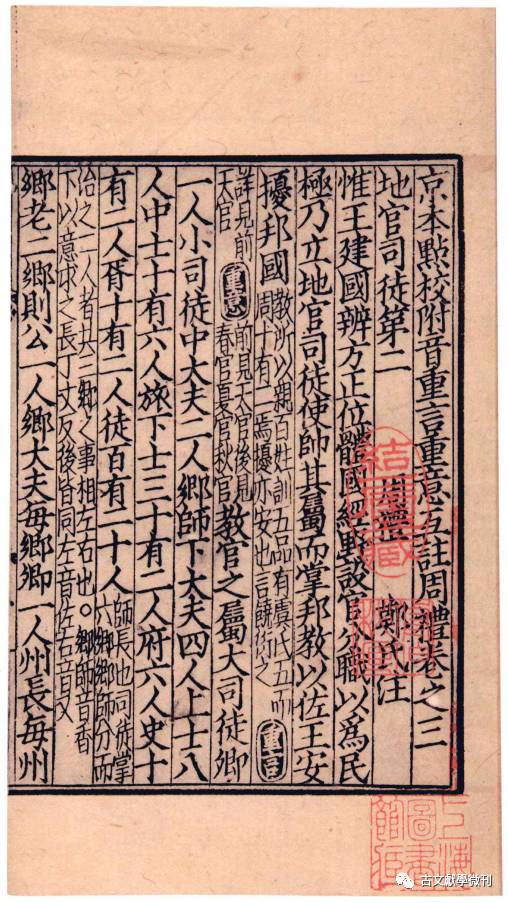 京本點校附音重言重意互註周禮卷之三
地官司徒第二　周禮　鄭氏注
惟王建國辨方正位體國經野設官分職以爲民
極乃立地官司徒使帥其屬而掌邦教以佐王安
擾邦國教所以親百姓訓五品有虞氏五而周十有一焉擾亦安也言饒衍之重言
詳見前天官重意前見天官後見春官夏官秋官教官之屬大司徒卿
一人小司徒中大夫二人鄉師下大夫四人上士八
人中士十有六人旅下士三十有二人府六人史十
有二人胥十有二人徒百有二十人師長也司徒掌六鄉鄉師分而
治之二人者共三鄉之事相左右也。鄉師音香下以意求之長丁丈反後皆同左音佐右音又
鄉老二鄉則公一人鄉大夫每鄉卿一人州長每州
上海圖書館
古文獻學微刊